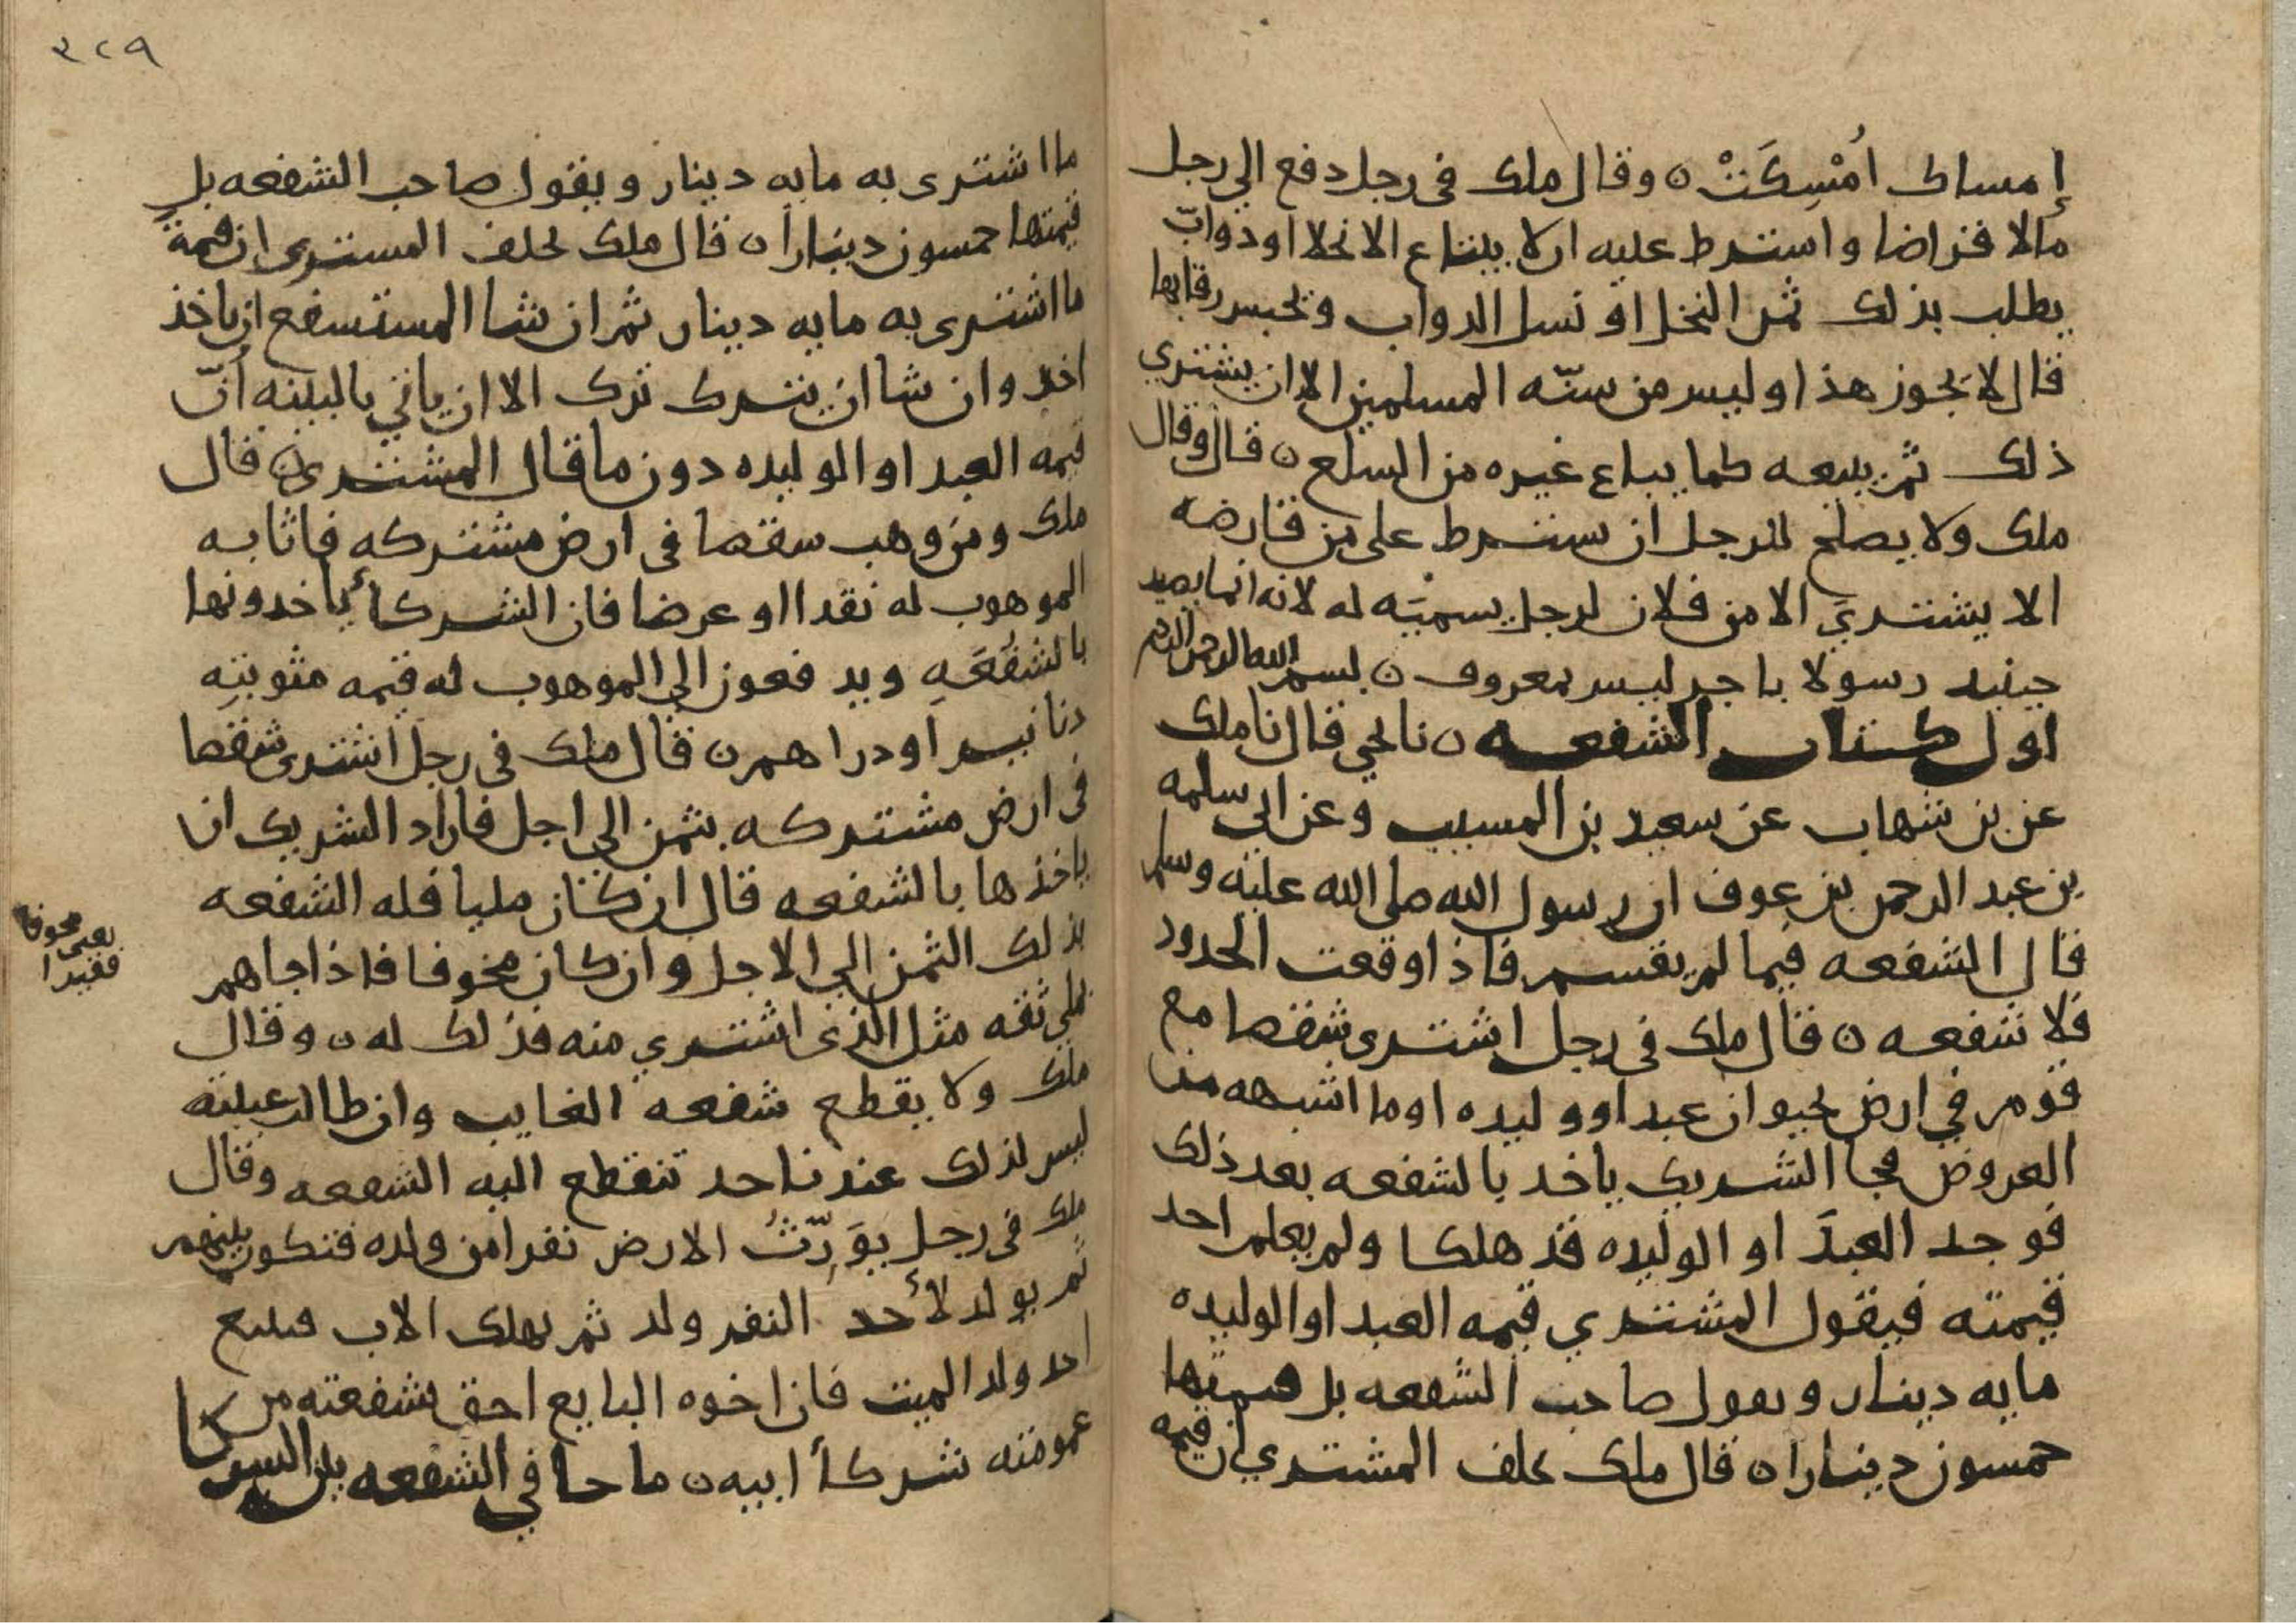 إمساك امْسِكَتْ ٥ وقال ملك في رجل دفع الي رجل
مالا قراضا واسترط عليه ان لا يبتاع الا نخلا او دوابّ
يطلب بذلك ثمر النخل او نسل الدواب ويحبس رقابها
قال لا يجوز هذا وليس من سنّه المسلمين الا ان يشتري
ذلك ثم يبيعه كما يباع غيره من السلع ٥ قال وقال
ملك ولا يصلح للرجل ان يسترط على من قارضه
الا يشتريَ الا من فلان لرجل يسميّه له لانه انما يصير
حينيد رسولا باجر ليس بمعروف ٥ بسم الله الرحمن الرحيم
اول كتاب الشفعه ٥ نا يحي قال نا ملك
عن بن شهاب عن سعيد بن المسيب وعن ابي سلمه
بن عبد الرحمن بن عوف ان رسول الله صلى الله عليه وسلم
قال الشفعه فيما لم يقسم فاذا وقعت الحدود
فلا شفعه ٥ قال ملك في رجل اشترى شقصا مع
قوم في ارض بحيوان عبد او وليده او ما اشبهه من
العروض فجا الشريك ياخد بالشفعه بعد ذلك
فوجد العبدَ او الوليده قد هلكا ولم يعلم احد
قيمته فيقول المشتري قيمه العبد او الوليده
مايه دينار ويقول صاحب الشفعه بل قيمتها
خمسون دينارا ٥ قال ملك يحلف المشتري ان قيمه
ما اشترى به مايه دينار ويقول صاحب الشفعه بل
قيمتها خمسون دينارا ٥ قال ملك يحلف المستري ان قيمة
ما اشترى به مايه دينار ثم ان شا المستسفع ان ياخذ
اخد وان شا ان يترك ترك الا ان ياتي بالبينه أنّ
قيمه العبد او الوليده دون ما قال المشتري ٥ قال
ملك ومن وهب سقصا في ارض مشتركه فاثابه
الموهوب له نقدا او عرضا فان الشركاء ياخدونها
بالشفعَهِ ويدفعون الى الموهوب له قيمه مثوبتِه
دنانير او دراهم ٥ قال ملك في رجل اشترى شقصا
في ارض مشتركه بثمن الى اجل فاراد الشريك ان
ياخذها بالشفعه قال ان كان مليا فله الشفعه
بذلك الثمن الي الاجل وان كان مخوفا فاذا جاهم
بملي ثقه مثل الذي اشتري منه فذلك له ٥ وقال
يعني مخوفا
فقيرا
ملك ولا يقطع شفعه الغايب وان طالت غيبته
ليس لذلك عندنا حد تنقطع اليه الشفعه وقال
ملك في رجل يوَرِّثُ الارض نفرا من ولده فتكون بينهم
ثم يولد لأحد النفر ولد ثم يهلك الاب فيبيع
احد ولد الميت فان اخوه البايع احق بشفعته من
عمومته شركأ ابيه ٥ ما جا في الشفعه بين الشركا